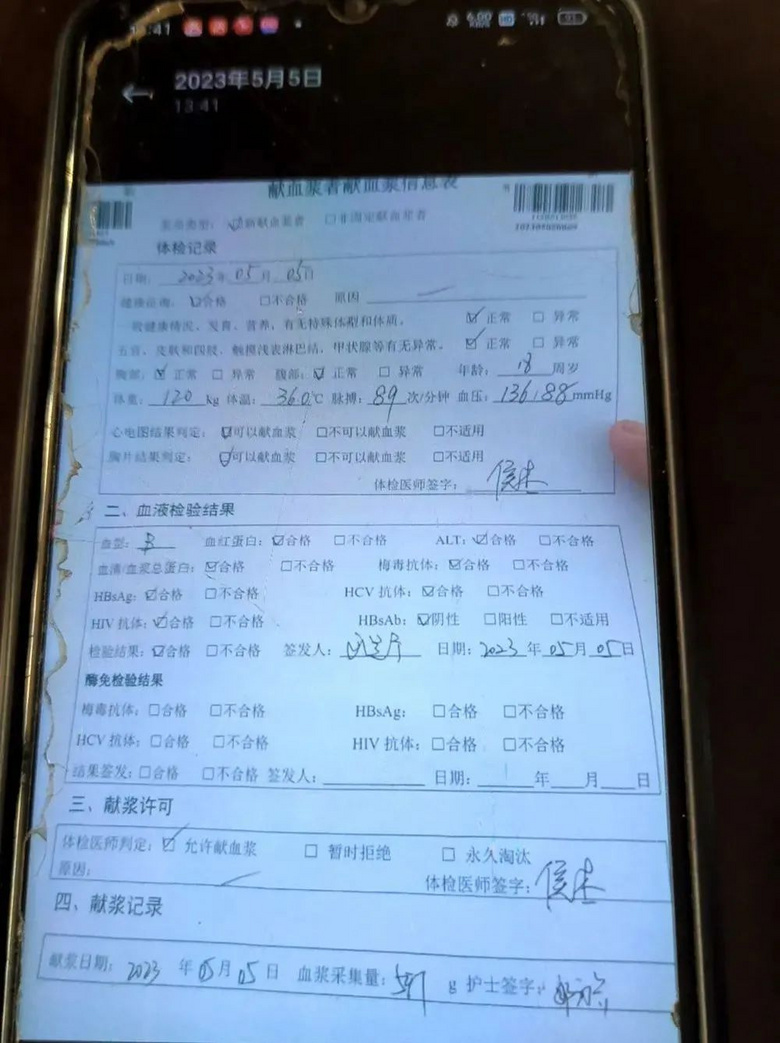 2023年5月5日
13:41
献血浆者献血浆信息表
☑新献血浆者 □非固定献血浆者
体检记录
日期: 2023年 05月 05日
健康征询: ☑合格 □不合格 原因
一般健康情况、发育、营养,有无特殊体型和体质。 ☑正常 □异常
五官、皮肤和四肢、触摸浅表淋巴结、甲状腺等有无异常。 ☑正常 □异常
胸部: ☑正常 □异常 腹部: ☑正常 □异常 年龄: 18 周岁
体重: 120 kg 体温: 36.0℃ 脉搏: 89 次/分钟 血压: 136/88 mmHg
心电图结果判定: ☑可以献血浆 □不可以献血浆 □不适用
胸片结果判定: ☑可以献血浆 □不可以献血浆 □不适用
体检医师签字:
二、血液检验结果
血型: B 血红蛋白: ☑合格 □不合格 ALT: ☑合格 □不合格
血清/血浆总蛋白: ☑合格 □不合格 梅毒抗体: ☑合格 □不合格
HBsAg: ☑合格 □不合格 HCV 抗体: ☑合格 □不合格
HIV 抗体: ☑合格 □不合格 HBsAb: ☑阴性 □阳性 □不适用
检验结果: ☑合格 □不合格 签发人: 日期: 2023 年 05 月 05 日
酶免检验结果
梅毒抗体: □合格 □不合格 HBsAg: □合格 □不合格
HCV 抗体: □合格 □不合格 HIV 抗体: □合格 □不合格
结果签发: □合格 □不合格 签发人: 日期: 年 月 日
三、献浆许可
体检医师判定: ☑ 允许献血浆 □ 暂时拒绝 □ 永久淘汰
原因:
体检医师签字:
四、献浆记录
献浆日期: 2023 年 05 月 05 日 血浆采集量: g 护士签字: